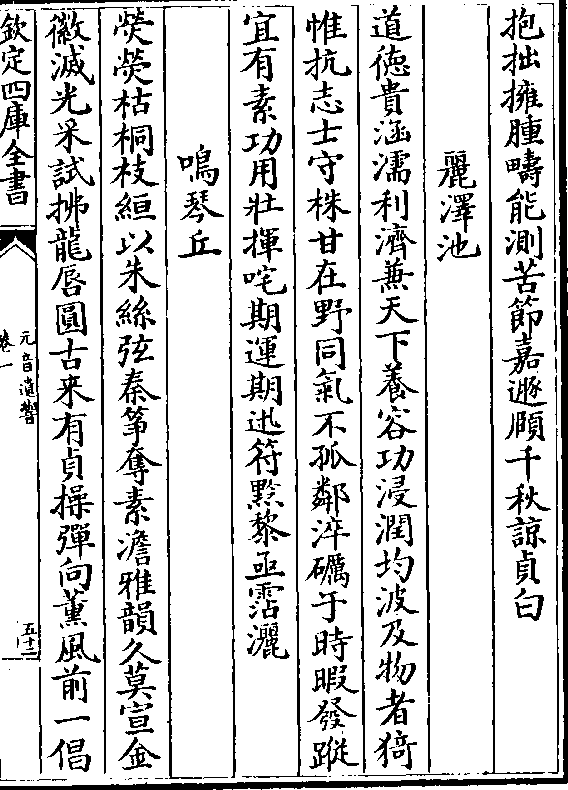 抱拙擁腫疇能測苦節嘉遯願千秋諒貞白
麗澤池
道徳貴涵濡利濟兼天下養容功浸潤均波及物者猗
惟抗志士守株甘在野同氣不孤鄰淬礪于時暇發蹤
宜有素功用壯揮咤期運期迅符黔黎亟霑灑
鳴琴丘
熒熒枯桐枝絙以朱絲弦秦筝奪素澹雅韻久莫宣金
徽滅光采試拂龍唇圓古来有貞操彈向薫風前一倡
欽定四庫全書
元音遺響
卷一
五十二